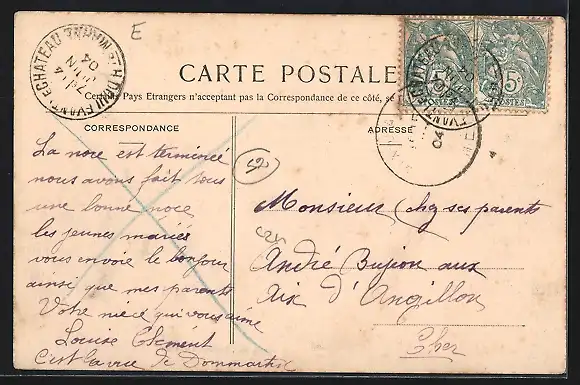 E
DOULEVANT-LE-CHATEAU Hte MARNE
JUIN
04
5c
5c
POSTES
CARTE POSTALE
Certains Pays Etrangers n'acceptant pas la Correspondance de ce côté, se
CORRESPONDANCE
ADRESSE
52
La noce est terminée
nous avons fait tous
une bonne noce
les jeunes mariés
vous envoie le bonjour
ainsi que mes parents
Votre nièce qui vous aime
Louise Clément
C'est la vue de Dommartin
Monsieur chez ses parents
André Bujon aux
Aix d'Angillon
Cher